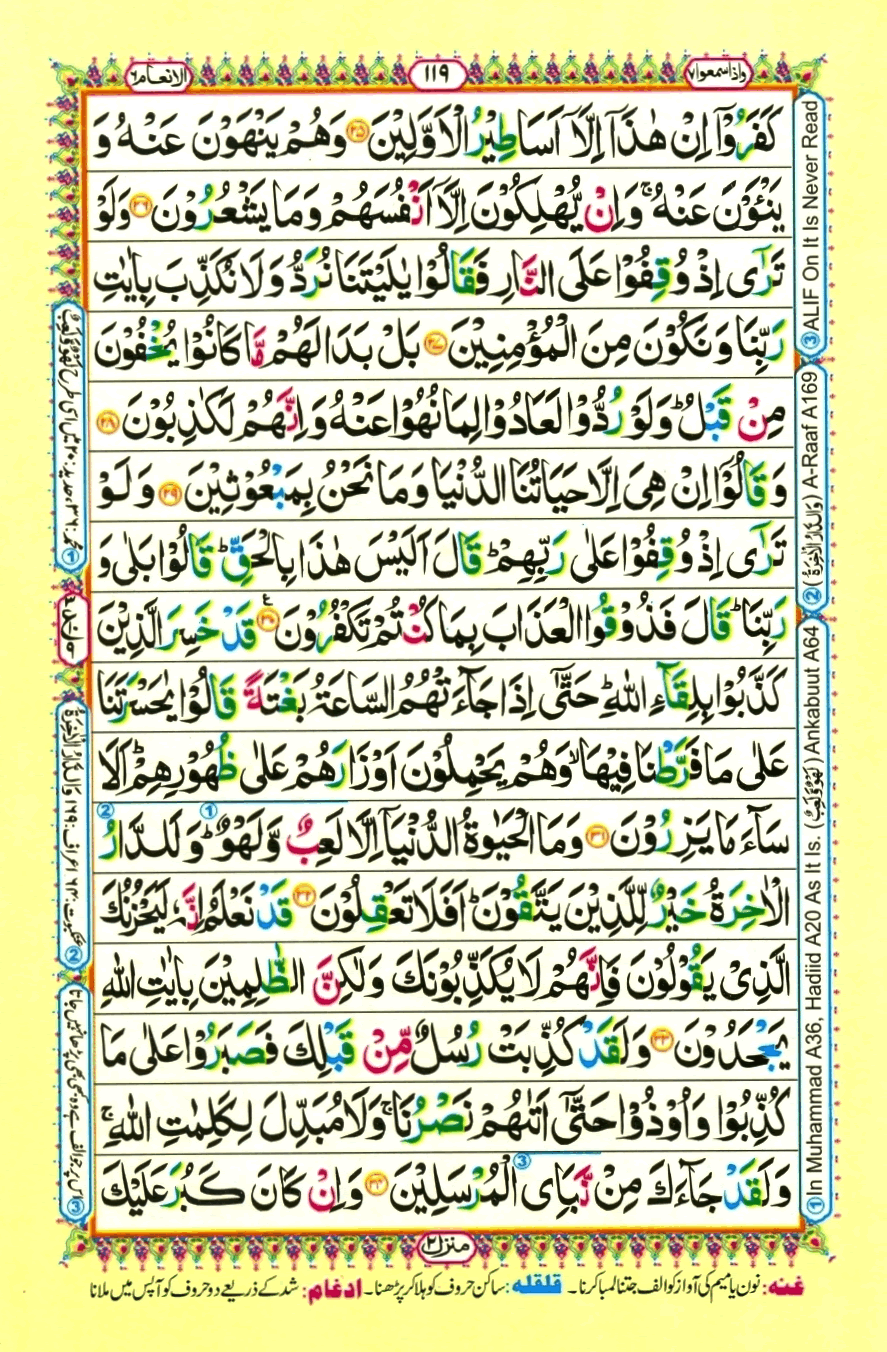 واذاسمعوا۷
۱۱۹
الانعام۶
كَفَرُوْۤا اِنْ هٰذَاۤ اِلَّاۤ اَسَاطِيْرُ الْاَوَّلِيْنَ ﴿۲۵﴾ وَهُمْ يَنْهَوْنَ عَنْهُ وَ
يَنْـَٔوْنَ عَنْهُ ۚ وَاِنْ يُّهْلِكُوْنَ اِلَّاۤ اَنْفُسَهُمْ وَمَا يَشْعُرُوْنَ ﴿۲۶﴾ وَلَوْ
تَرٰۤى اِذْ وُقِفُوْا عَلَى النَّارِ فَقَالُوْا يٰلَيْتَنَا نُرَدُّ وَلَا نُكَذِّبَ بِاٰيٰتِ
رَبِّنَا وَنَكُوْنَ مِنَ الْمُؤْمِنِيْنَ ﴿۲۷﴾ بَلْ بَدَا لَهُمْ مَّا كَانُوْا يُخْفُوْنَ
مِنْ قَبْلُ ؕ وَلَوْ رُدُّوْا لَعَادُوْا لِمَا نُهُوْا عَنْهُ وَاِنَّهُمْ لَكٰذِبُوْنَ ﴿۲۸﴾
وَقَالُوْۤا اِنْ هِىَ اِلَّا حَيَاتُنَا الدُّنْيَا وَمَا نَحْنُ بِمَبْعُوْثِيْنَ ﴿۲۹﴾ وَلَوْ
تَرٰۤى اِذْ وُقِفُوْا عَلٰى رَبِّهِمْ ؕ قَالَ اَلَيْسَ هٰذَا بِالْحَقِّ ؕ قَالُوْا بَلٰى وَ
رَبِّنَا ؕ قَالَ فَذُوْقُوا الْعَذَابَ بِمَا كُنْتُمْ تَكْفُرُوْنَ ﴿۳۰﴾ ع قَدْ خَسِرَ الَّذِيْنَ
كَذَّبُوْا بِلِقَآءِ اللّٰهِ ؕ حَتّٰۤى اِذَا جَآءَتْهُمُ السَّاعَةُ بَغْتَةً قَالُوْا يٰحَسْرَتَنَا
عَلٰى مَا فَرَّطْنَا فِيْهَا ۙ وَهُمْ يَحْمِلُوْنَ اَوْزَارَهُمْ عَلٰى ظُهُوْرِهِمْ ؕ اَلَا
سَآءَ مَا يَزِرُوْنَ ﴿۳۱﴾ وَمَا الْحَيٰوةُ الدُّنْيَاۤ اِلَّا لَعِبٌ وَّلَهْوٌ ؕ وَلَلدَّارُ
الْاٰخِرَةُ خَيْرٌ لِّلَّذِيْنَ يَتَّقُوْنَ ؕ اَفَلَا تَعْقِلُوْنَ ﴿۳۲﴾ قَدْ نَعْلَمُ اِنَّهٗ لَيَحْزُنُكَ
الَّذِىْ يَقُوْلُوْنَ فَاِنَّهُمْ لَا يُكَذِّبُوْنَكَ وَلٰكِنَّ الظّٰلِمِيْنَ بِاٰيٰتِ اللّٰهِ
يَجْحَدُوْنَ ﴿۳۳﴾ وَلَقَدْ كُذِّبَتْ رُسُلٌ مِّنْ قَبْلِكَ فَصَبَرُوْا عَلٰى مَا
كُذِّبُوْا وَاُوْذُوْا حَتّٰۤى اَتٰىهُمْ نَصْرُنَا ۚ وَلَا مُبَدِّلَ لِكَلِمٰتِ اللّٰهِ ۚ
وَلَقَدْ جَآءَكَ مِنْ نَّبَاِى الْمُرْسَلِيْنَ ﴿۳۴﴾ وَاِنْ كَانَ كَبُرَ عَلَيْكَ
① In Muhammad A36, Hadiid A20 As It Is. (لَهْوٌ وَّلَعِبٌ) Ankabuut A64
② (وَالدَّارُ الْاٰخِرَةُ) A-Raaf A169
③ ALIF On It Is Never Read
① محمد: ۳۶، حدید: ۲۰ میں اسی طرح لَهْوٌ وَّلَعِبٌ
② عنکبوت: ۶۴، اعراف: ۱۶۹ وَالدَّارُ الْاٰخِرَةُ
③ اس پر جو الف ہے وہ کبھی بھی پڑھا نہیں جاتا
منزل۲
غنه: نون یا میم کی آواز کو الف جتنا لمبا کرنا۔ قلقله: ساکن حروف کو ہلا کر پڑھنا۔ ادغام: شد کے ذریعے دو حروف کو آپس میں ملانا